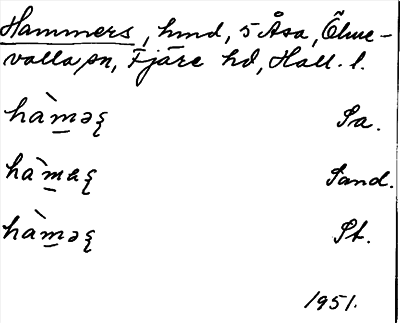 Hammers, hmd, 5 Åsa, Ölme-
valla sn, Fjäre hd, Hall. l.
hàm̲əʂ Sa.
hàm̲aʂ Sand.
hàm̲əʂ St.
1951.